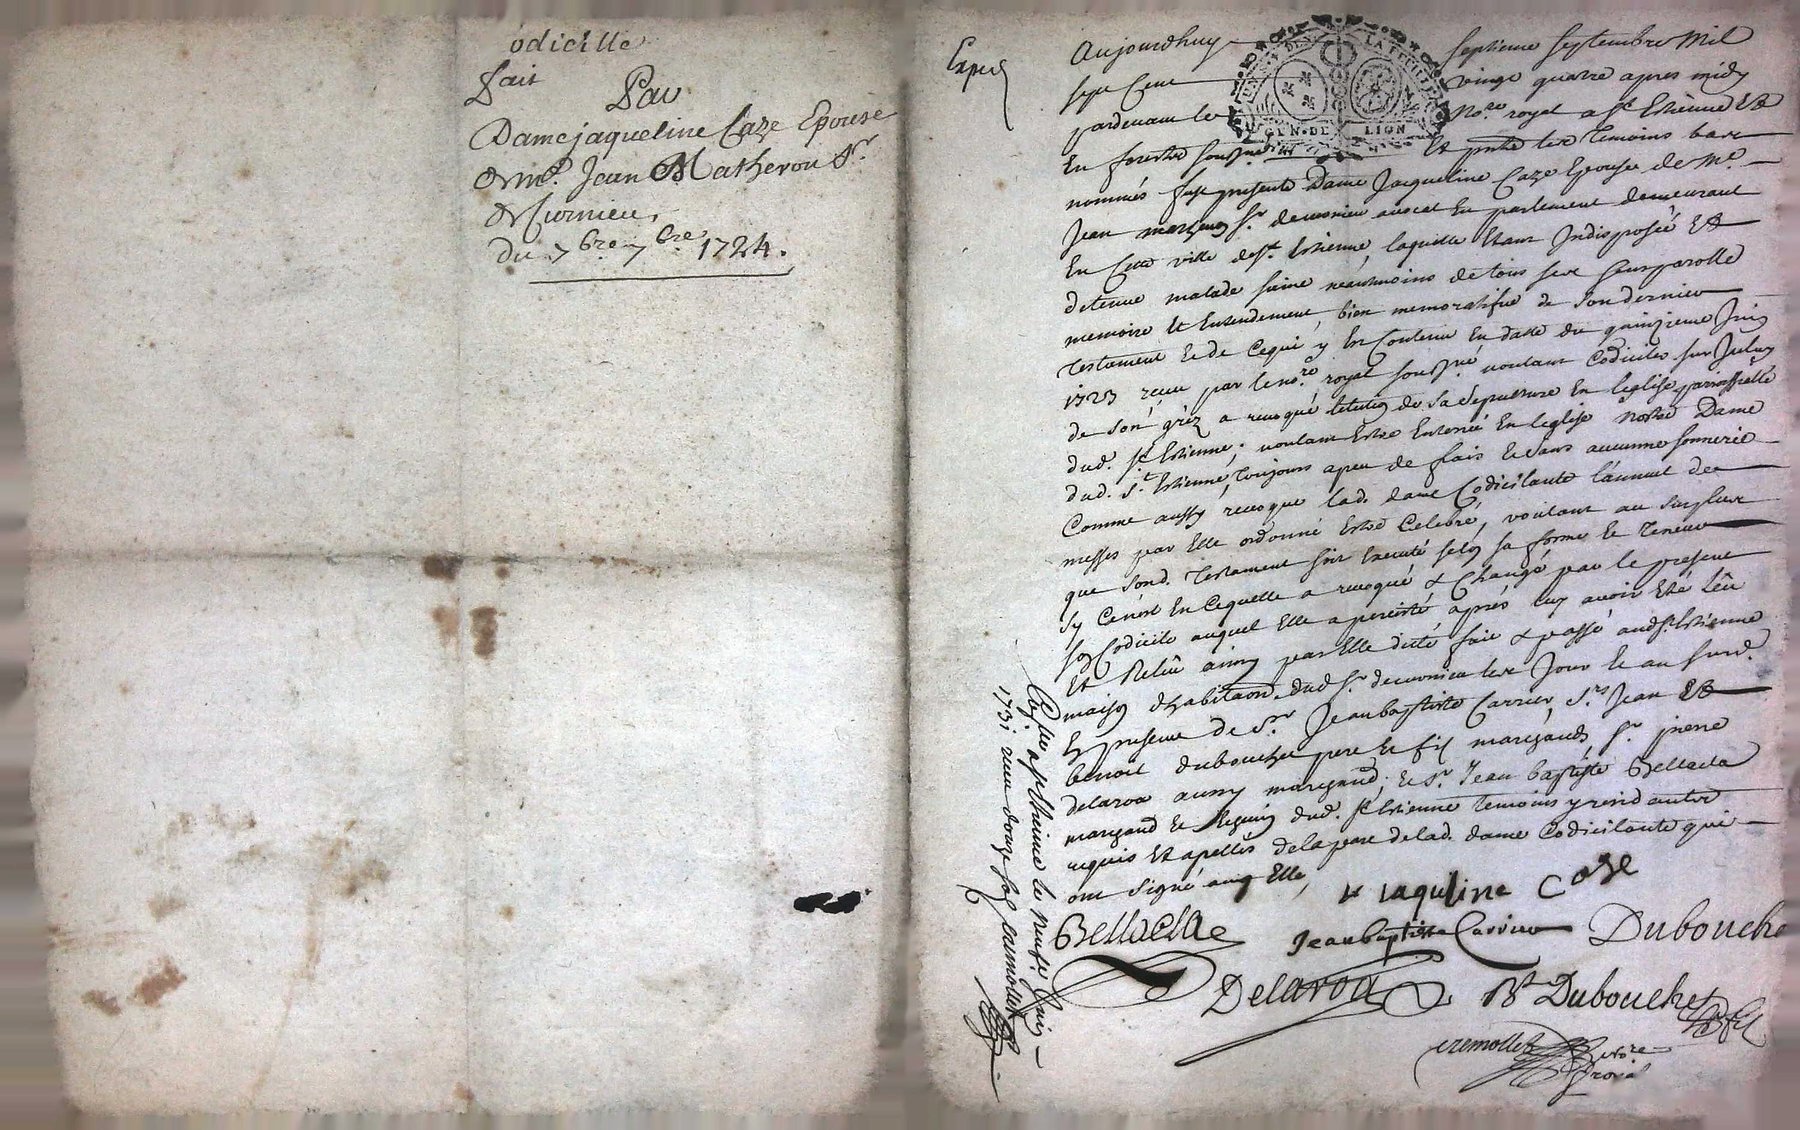 odicille
fait
Par
Dame jaqueline Caze Epouse
de Me. Jean Matheron Sr.
de Curnieu,
du 7bre 7bre 1724.
Exped
Aujourdhuy septieme septembre Mil
sept Cent vingt quatre apres midy
pardevant le No.re royal a St Estienne Et
En forestz soussigné Et présents les temoins bas
nommés fust presente Dame Jacqueline Caze Epouse de Me.
Jean Sr. decurnieu avocat En parlement demeurant
En Cette ville de St. Estienne, laquelle Etant Indisposée Et
detenue malade saine neantmoins de tous ses sens parolle
memoire Et Entendement, bien memoratifve de son dernier
testament Et de Cequi y Est Contenu En datte du quinzieme Juin
1723 receu par le no.re royal soussigné voulant Codiciler sur Iceluy
de son gréz a revoqué lelection de sa sepulture En leglise parroissialle
dud. St Estienne; voulant Estre Enterrée En leglise Nostre Dame
dud. St. Estienne, toujours a peu de frais Et sans aucunne sonnerie
Comme aussy revoque lad. dame Codicilante lannuel de
messes par Elle ordonné Estre Celebré, voulant au surplus
que sond. testament soit Executé selon sa forme Et teneur
sy Cenest En Cequelle a revoqué & Changé par le present
son Codicile auquel Elle a percisté aprés luy avoir Eté lêu
Et Relêu ainsy par Elle dicté fait & passé aud St. Estienne
maison dhabitaon. dud Sr. decurnieu les Jour Et an susd.
En presence de Sr. Jean baptiste Carrier, Srs Jean Et
benoit dubouchet pere Et fils marchands, Sr. pierre
delaroa aussy marchand. Et Sr. Jean baptiste Bellacla
marchand Et dud. St Estienne temoins
requis Et apellés de la part de lad. dame Codicilante qui
ont signé avec Elle,
Jaquline Caze
Bellacla
Jeanbaptiste Carrier
Dubouche
Delaroa
Bt Dubouche fils
cremollet
No.re
royal
le Neufe Juin
1731 receu douze sols cremollet